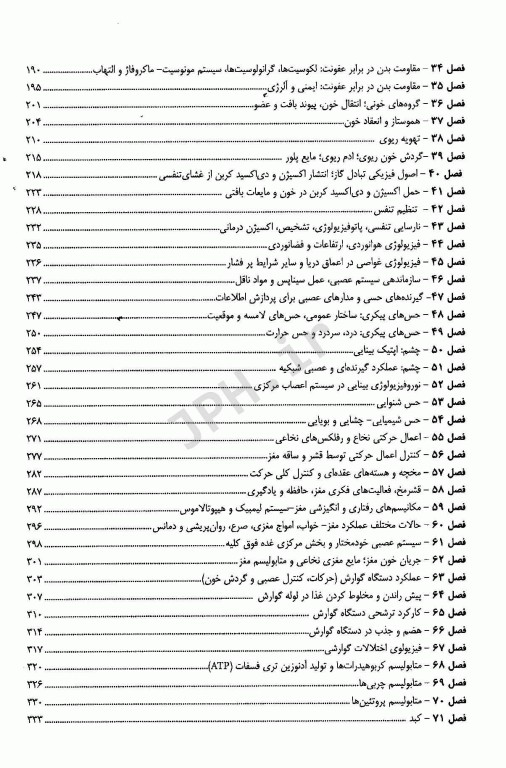 فصل ۳۴ - مقاومت بدن در برابر عفونت: لکوسیت‌ها، گرانولوسیت‌ها، سیستم مونوسیت- ماکروفاژ و التهاب ۱۹۰
فصل ۳۵ - مقاومت بدن در برابر عفونت: ایمنی و آلرژی ۱۹۵
فصل ۳۶ - گروه‌های خونی؛ انتقال خون، پیوند بافت و عضو ۲۰۱
فصل ۳۷ - هموستاز و انعقاد خون ۲۰۴
فصل ۳۸ - تهویه ریوی ۲۱۰
فصل ۳۹ -گردش خون ریوی؛ ادم ریوی؛ مایع پلور ۲۱۵
فصل ۴۰ - اصول فیزیکی تبادل گاز؛ انتشار اکسیژن و دی‌اکسید کربن از غشای‌تنفسی ۲۱۸
فصل ۴۱ - حمل اکسیژن و دی‌اکسید کربن در خون و مایعات بافتی ۲۲۳
فصل ۴۲ - تنظیم تنفس ۲۲۸
فصل ۴۳ - نارسایی تنفسی، پاتوفیزیولوژی، تشخیص، اکسیژن درمانی ۲۳۲
فصل ۴۴ - فیزیولوژی هوانوردی، ارتفاعات و فضانوردی ۲۳۵
فصل ۴۵ - فیزیولوژی غواصی در اعماق دریا و سایر شرایط پر فشار ۲۳۶
فصل ۴۶ - سازماندهی سیستم عصبی، عمل سیناپس و مواد ناقل ۲۳۷
فصل ۴۷- گیرنده‌های حسی و مدارهای عصبی برای پردازش اطلاعات ۲۴۳
فصل ۴۸ - حس‌های پیکری: ساختار عمومی، حس‌های لامسه و موقعیت ۲۴۷
فصل ۴۹ - حس‌های پیکری: درد، سردرد و حس حرارت ۲۵۰
فصل ۵۰ - چشم: اپتیک بینایی ۲۵۴
فصل ۵۱ - چشم: عملکرد گیرنده‌ای و عصبی شبکیه ۲۵۷
فصل ۵۲ - نوروفیزیولوژی بینایی در سیستم اعصاب مرکزی ۲۶۱
فصل ۵۳ - حس شنوایی ۲۶۵
فصل ۵۴ - حس شیمیایی- چشایی و بویایی ۲۶۸
فصل ۵۵ - اعمال حرکتی نخاع و رفلکس‌های نخاعی ۲۷۱
فصل ۵۶ - کنترل اعمال حرکتی توسط قشر و ساقه مغز ۲۷۷
فصل ۵۷ - مخچه و هسته‌های عقده‌ای و کنترل کلی حرکت ۲۸۲
فصل ۵۸ - قشرمخ، فعالیت‌های فکری مغز، حافظه و یادگیری ۲۸۷
فصل ۵۹ - مکانیسم‌های رفتاری و انگیزشی مغز-سیستم لیمبیک و هیپوتالاموس ۲۹۲
فصل ۶۰ - حالات مختلف عملکرد مغز- خواب، امواج مغزی، صرع، روان‌پریشی و دمانس ۲۹۶
فصل ۶۱ - سیستم عصبی خودمختار و بخش مرکزی غده فوق کلیه ۲۹۸
فصل ۶۲ - جریان خون مغز؛ مایع مغزی نخاعی و متابولیسم مغز ۳۰۱
فصل ۶۳ - عملکرد دستگاه گوارش (حرکات، کنترل عصبی و گردش خون) ۳۰۳
فصل ۶۴ - پیش راندن و مخلوط کردن غذا در لوله گوارش ۳۰۷
فصل ۶۵ - کارکرد ترشحی دستگاه گوارش ۳۱۰
فصل ۶۶ - هضم و جذب در دستگاه گوارش ۳۱۴
فصل ۶۷ - فیزیولوی اختلالات گوارشی ۳۱۷
فصل ۶۸ - متابولیسم کربوهیدرات‌ها و تولید آدنوزین تری فسفات (ATP) ۳۲۰
فصل ۶۹ - متابولیسم چربی‌ها ۳۲۶
فصل ۷۰ - متابولیسم پروتئین‌ها ۳۳۰
فصل ۷۱ - کبد ۳۳۳
JPH.ir